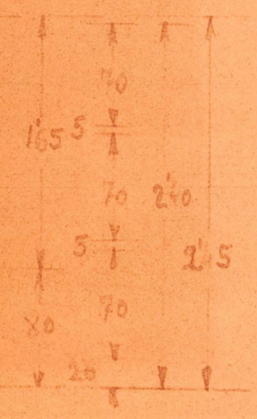 70
165 5
70 240
5 245
80 70
20